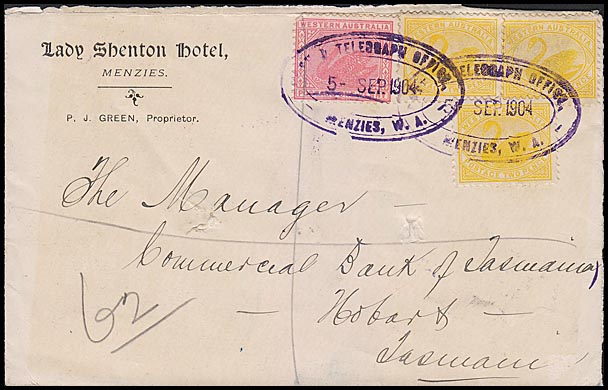 Lady Shenton Hotel,
MENZIES.
P. J. GREEN, Proprietor.
WESTERN AUSTRALIA
WESTERN AUSTRALIA
WESTERN AUSTRALIA
& TELEGRAPH OFFICE,
5- SEP. 1904
MENZIES, W. A.
TELEGRAPH OFFICE,
SEP. 1904
MENZIES, W. A.
POSTAGE TWO PENCE
The Manager
Commercial Bank of Tasmania
Hobart
Tasmania
62